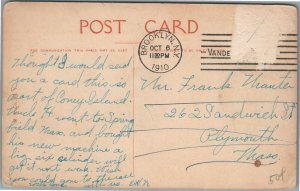 POST CARD
THE COMMUNICATION THIS HALF MAY BE USED
BROOKLYN, N.Y.
OCT 6
11 PM
1910
VANDE
Thought I would send
you a card this is
part of Coney Island.
went to Spring
field Mass. and bought
his new machine a
big six
get it next week
you could
Mr. Frank
262 Sandwich St
Plymouth
Mass.
50¢